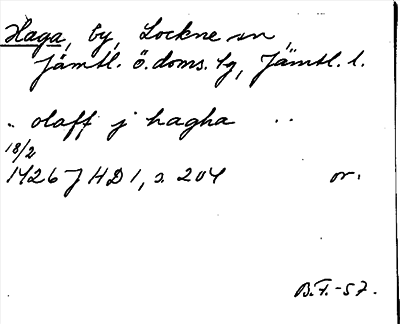 Haga, by, Lockne sn,
Jämtl. ö. doms. lg, Jämtl. l.
.. olaff j hagha ..
18/2
1426 JHD 1, s. 204 or.
B.F.-57.